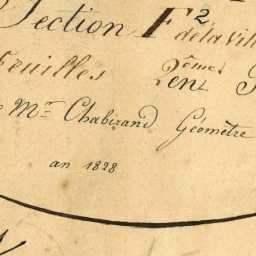 Section F2 de la Vil
Feuilles 2ème en
Mr Chabirand Géomètre
an 1828